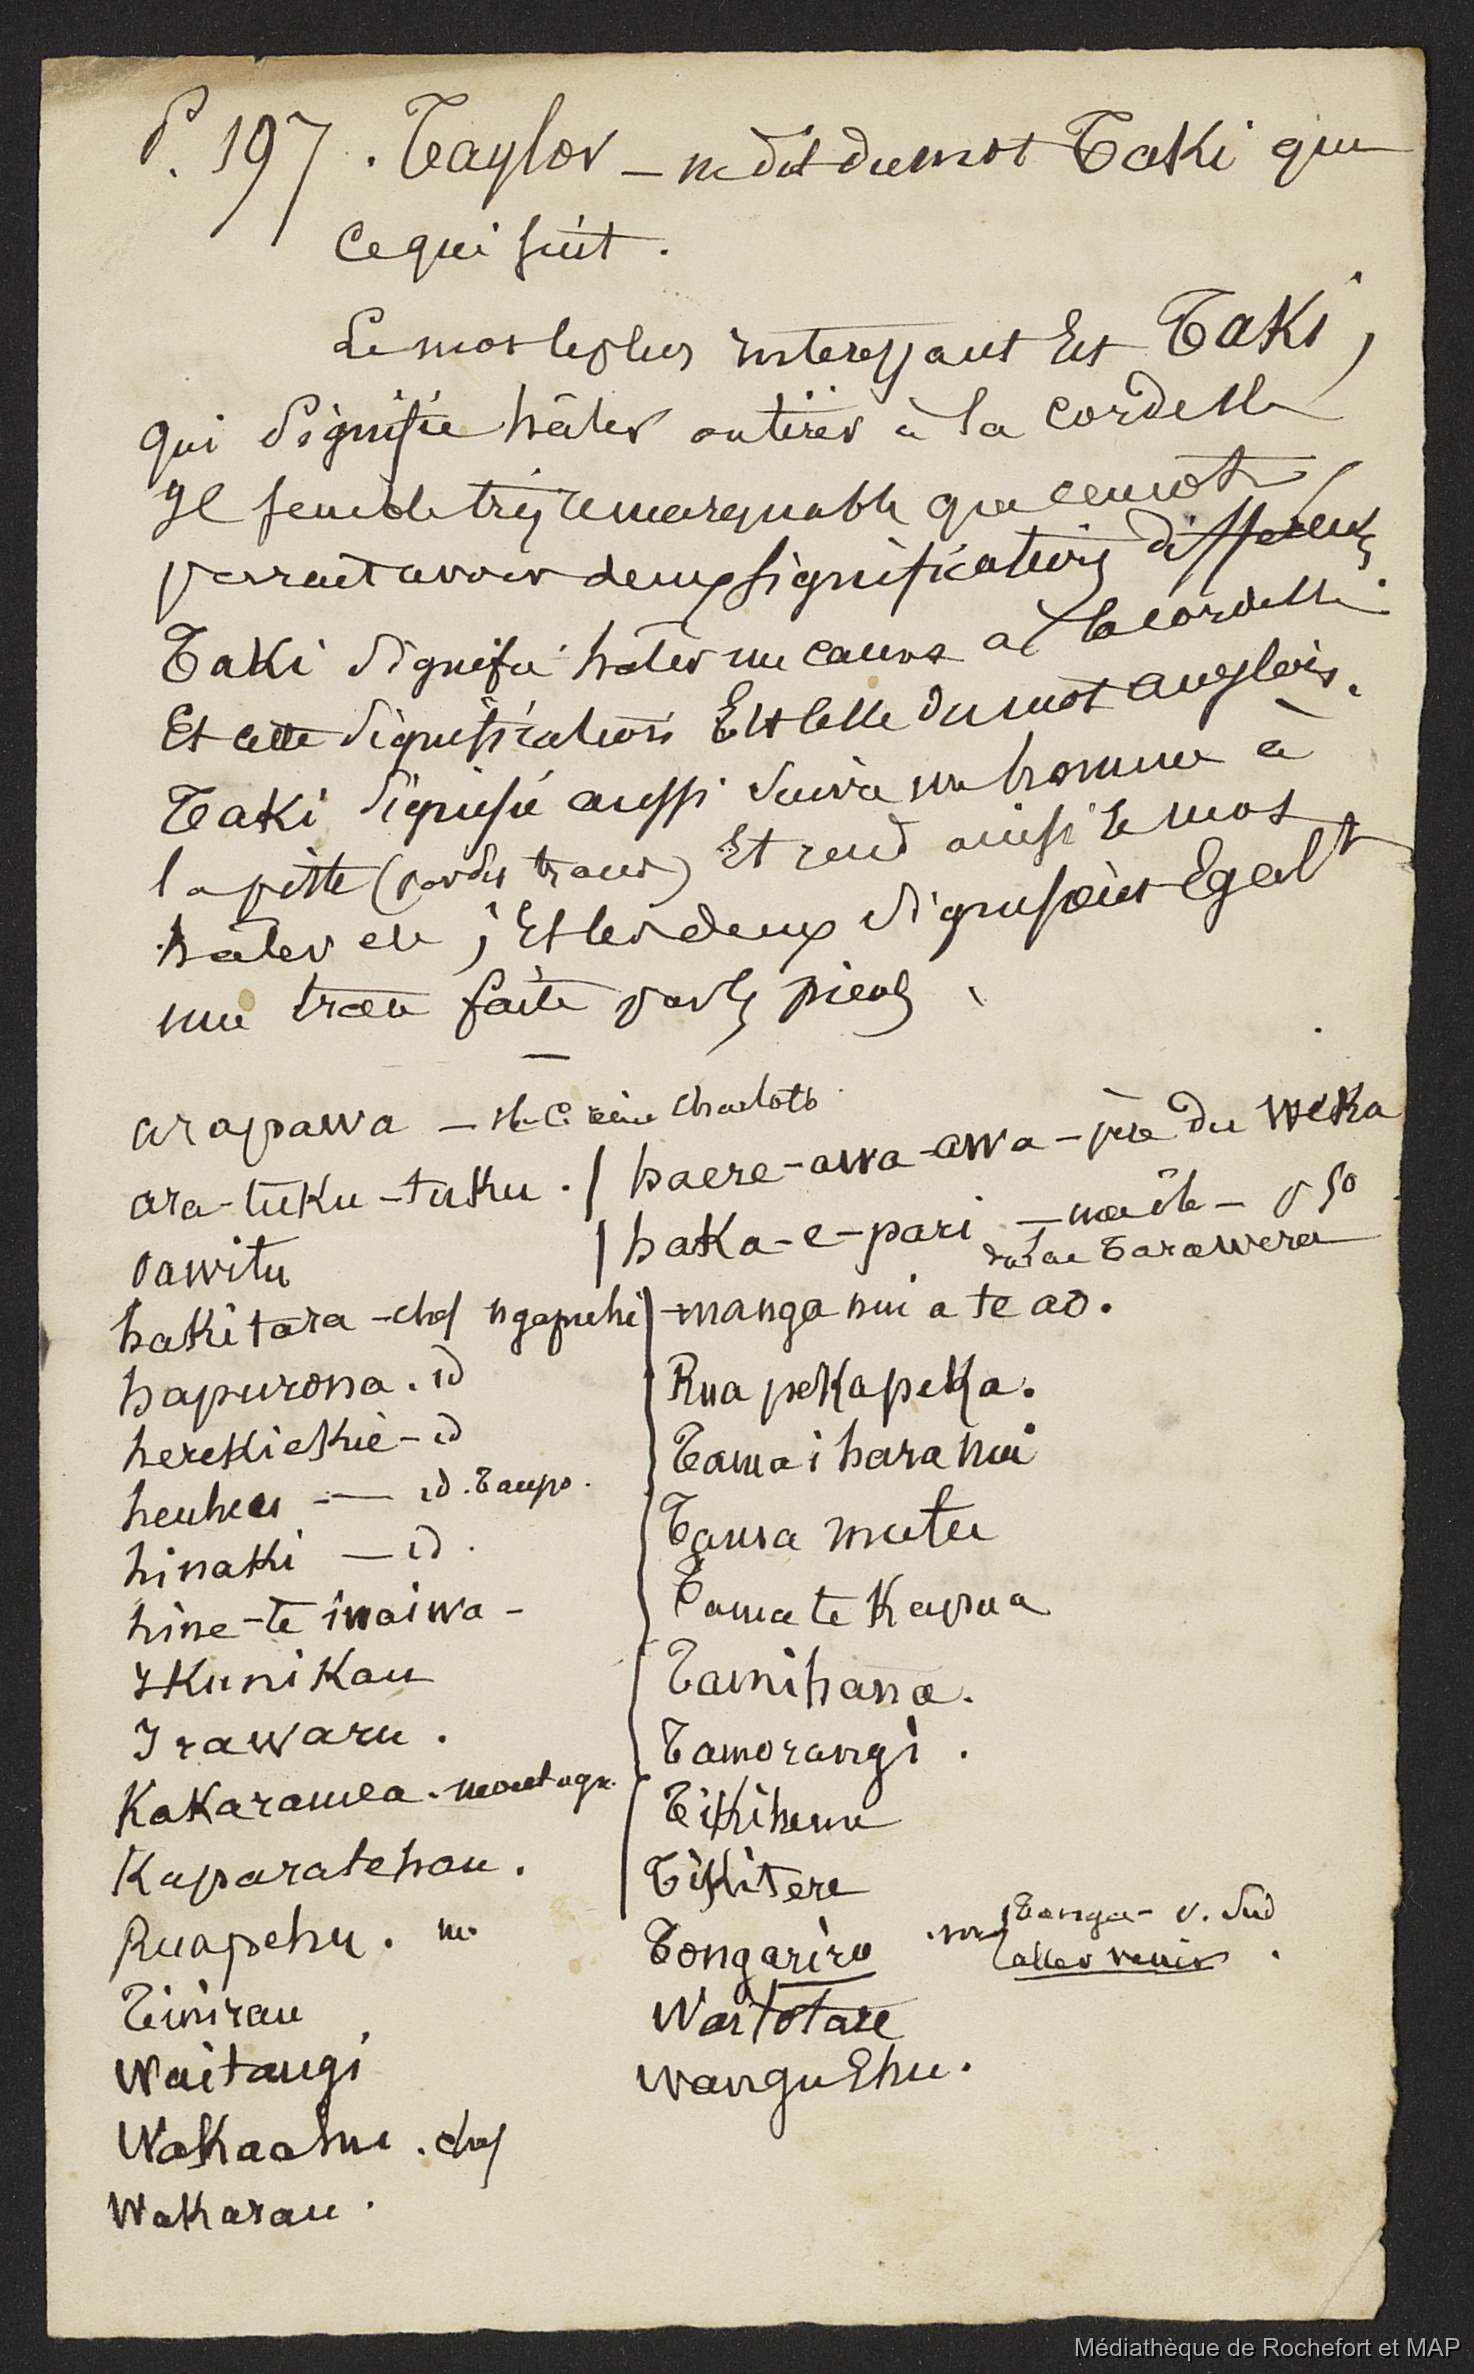 P. 197. Taylor — ne dit du mot Taki que
ce qui suit.
Le mot le plus interessant Est Taki,
qui signifie hâler ou tirer à la cordelle
Il semble très remarquable que ce mot
verrait avoir deux significations differentes
Taki signifie haler un canot à la cordelle.
Et cette signification Est celle du mot anglais.
Taki signifie aussi suivre un homme à
la piste (par des traces) Et rend ainsi le mot
hâler ; Et les deux signifient Egalt
une trace faite par les pieds.
arapawa — C. reine Charlotte
ara-tuku-tuku. | haere-awa-awa - père du Weka
oawitu | haka-e-pari — p 50
Tarawera
hakitara - chef ngapuhi | manga nui a te ao.
hapurona. id | Rua pekapeka.
herekiekie - id | Tama i hara nui
heuheu — id. Taupo. | Tama mutu
hinaki — id. | Tama te Kapua
hine-te iwaiwa - | Tamihana.
Ikunikau | Tamorangi.
Irawaru. | Tikihemu
Kakaramea. montagne | Tikitere
Kaparatehau. | Tongariro Tonga - v. Sud
aller venir.
Ruapehu. m. | Waitotare
Tinirau | wanguEhu.
Waitangi
Wakaahu. chef
Wakarau.
Médiathèque de Rochefort et MAP